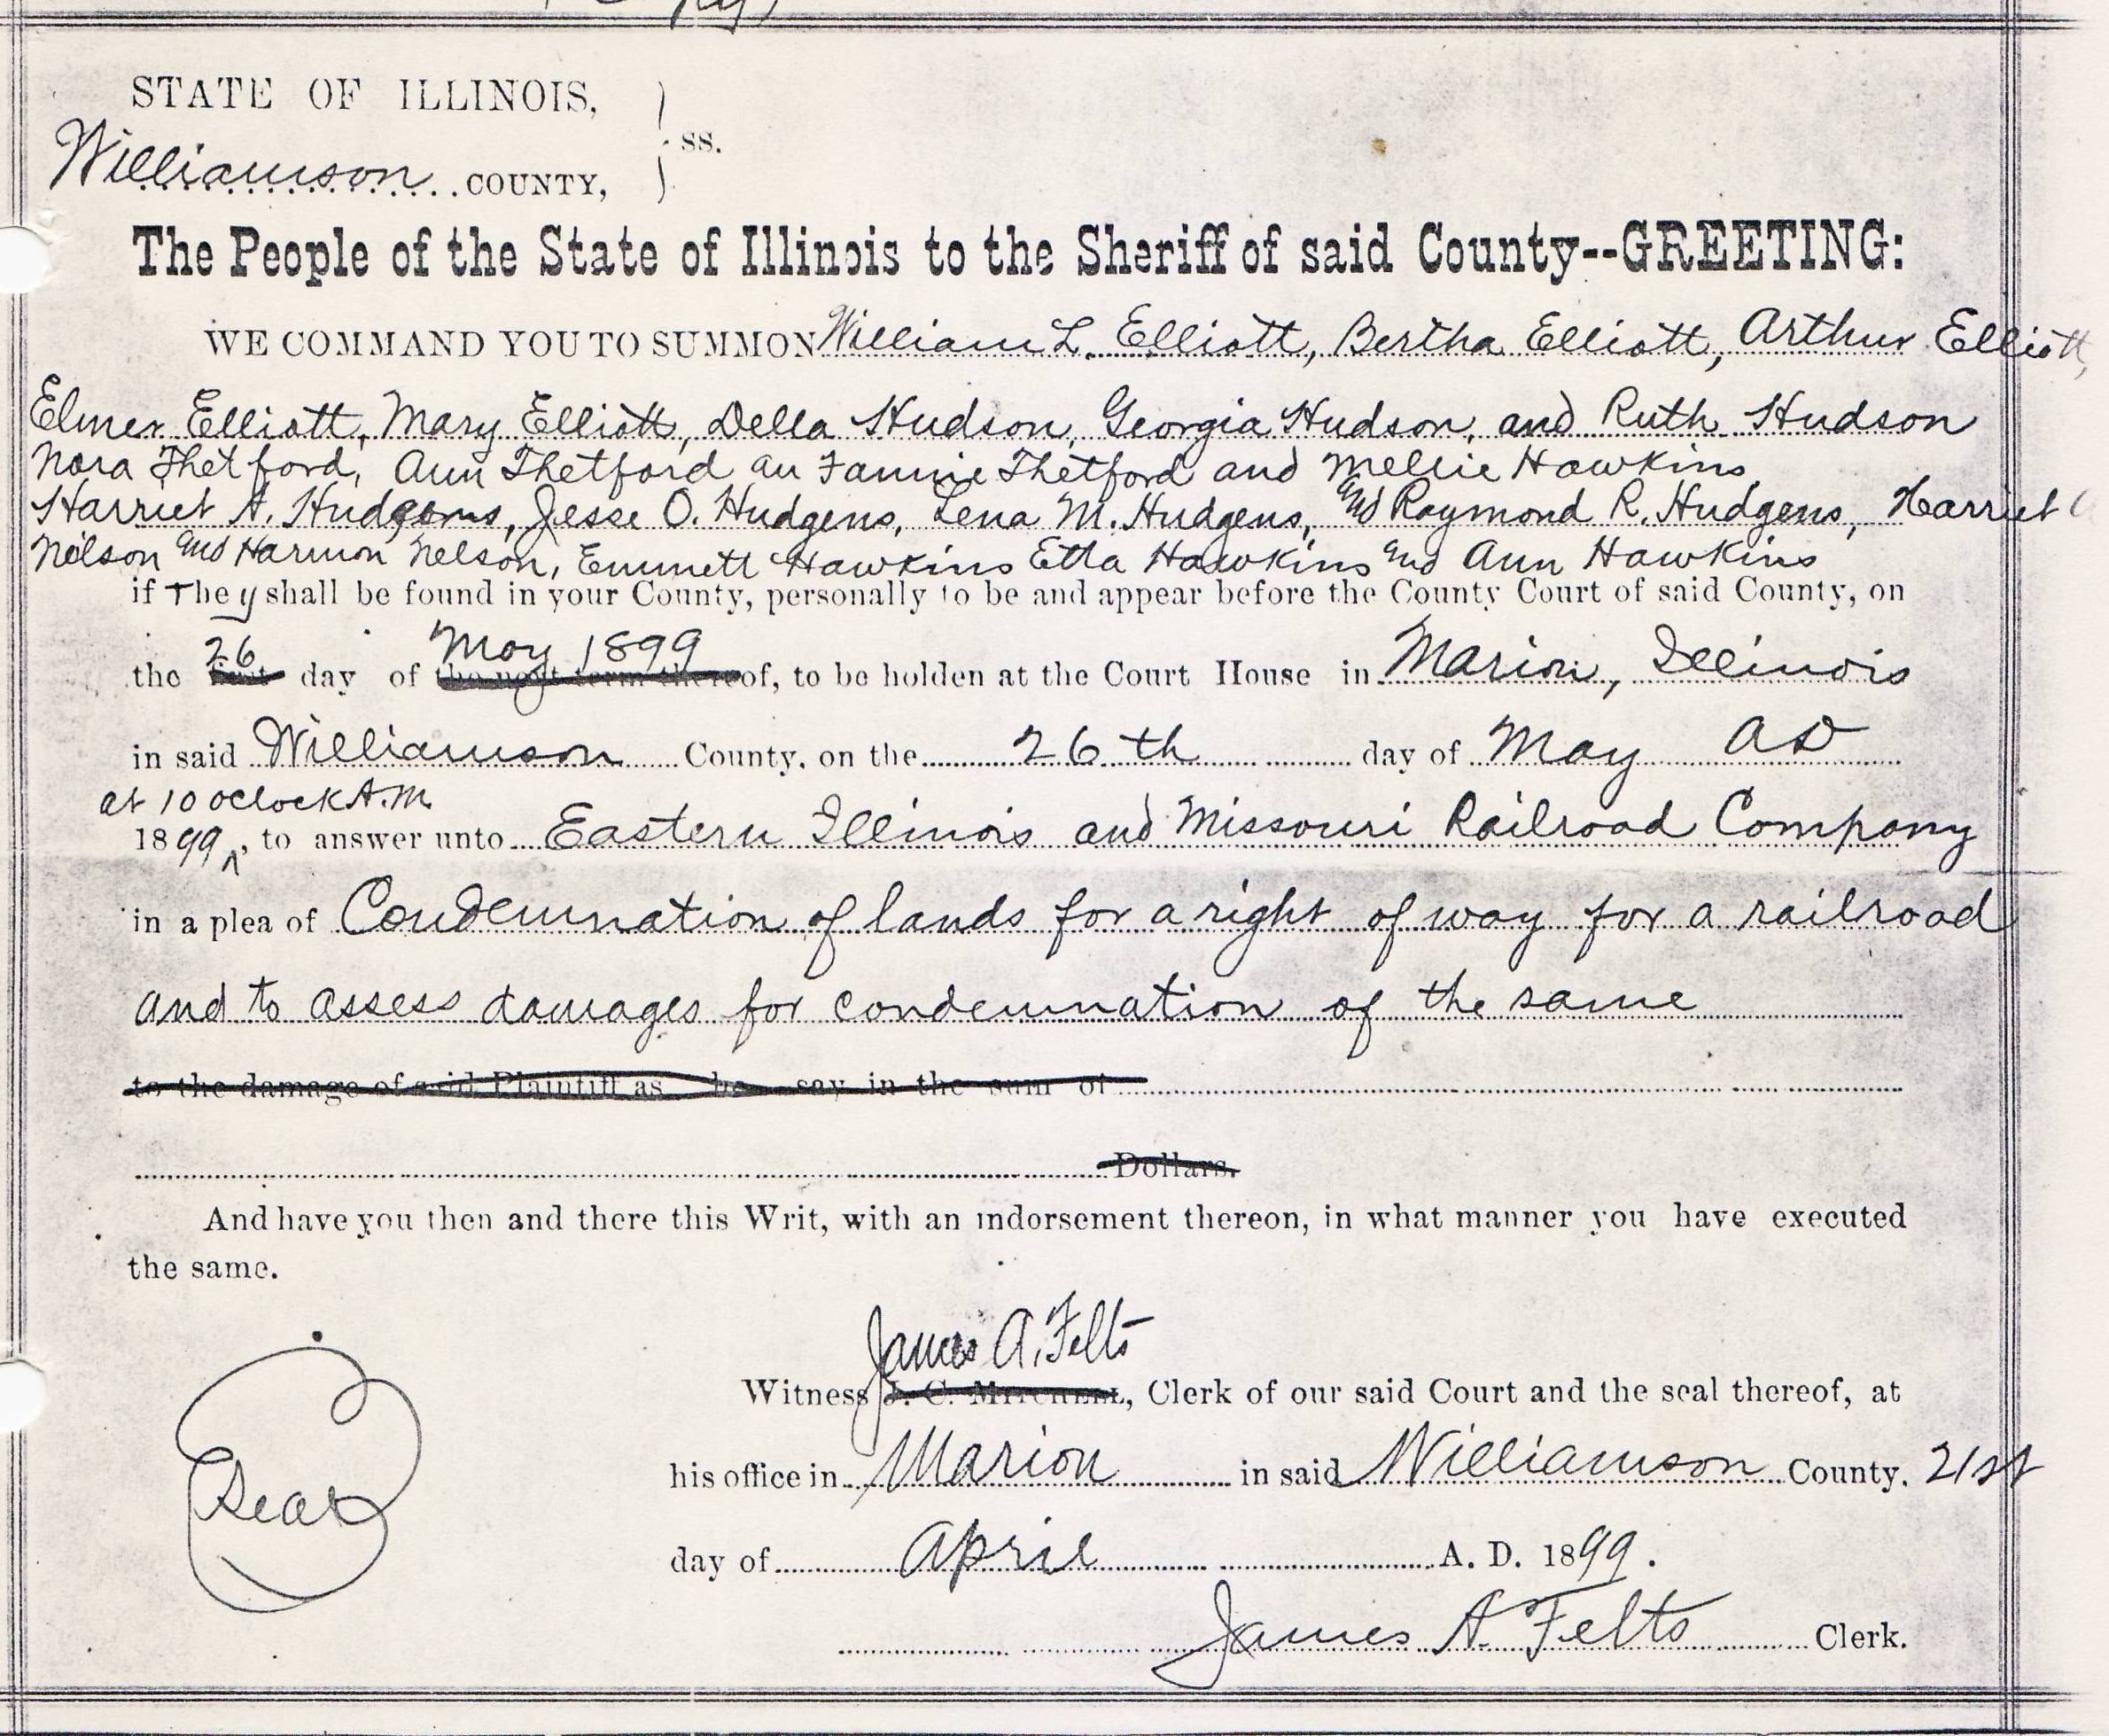 STATE OF ILLINOIS,
Williamson COUNTY, } ss.
The People of the State of Illinois to the Sheriff of said County--GREETING:
WE COMMAND YOU TO SUMMON William L. Elliott, Bertha Elliott, Arthur Elliott,
Elmer Elliott, Mary Elliott, Della Hudson, Georgia Hudson, and Ruth Hudson
Nora Thetford, Ann Thetford an Fannie Thetford and Mellie Hawkins
Harriet A. Hudgens, Jesse O. Hudgens, Lena M. Hudgens, and Raymond R. Hudgens, Harriet
Nelson and Harmon Nelson, Emmett Hawkins Etta Hawkins and Ann Hawkins
if They shall be found in your County, personally to be and appear before the County Court of said County, on
26 May 1899
the first day of the next term thereof, to be holden at the Court House in Marion, Illinois
in said Williamson County, on the 26th day of May AD
at 10 oclock A.M.
1899, to answer unto Eastern Illinois and Missouri Railroad Company
in a plea of Condemnation of lands for a right of way for a railroad
and to assess damages for condemnation of the same
to the damage of said Plaintiff as he say in the sum of
Dollars.
And have you then and there this Writ, with an indorsement thereon, in what manner you have executed
the same.
James A. Felts
Witness J. C. Mitchell, Clerk of our said Court and the seal thereof, at
his office in Marion in said Williamson County. 21st
Seal
day of April A. D. 1899.
James A. Felts Clerk.